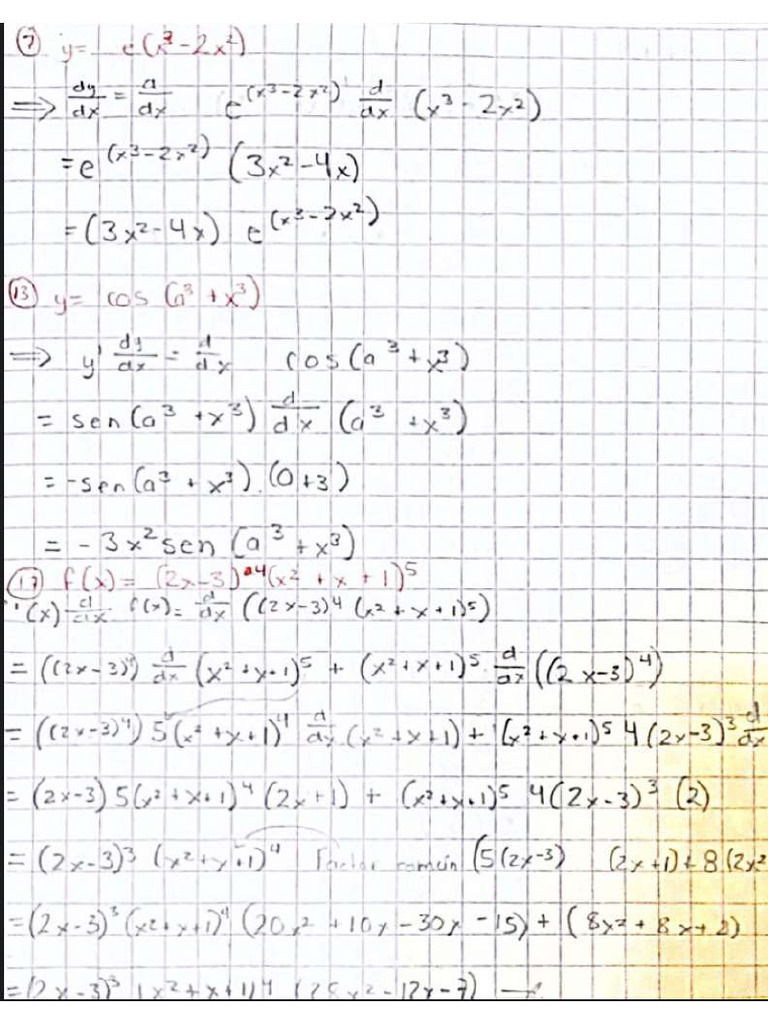 ⑦ y = e(x³ - 2x²)
⟹ dy/dx = d/dx e^(x³-2x²) d/dx (x³ - 2x²)
= e^(x³-2x²) (3x² - 4x)
= (3x² - 4x) e^(x³-2x²)
⑬ y = cos (a³ + x³)
⟹ y' dy/dx = d/dx cos(a³ + x³)
= sen(a³ + x³) d/dx (a³ + x³)
= -sen(a³ + x³).(0+3)
= - 3x² sen (a³ + x³)
⑰ f(x) = (2x-3)⁴(x² + x + 1)⁵
'(x) d/dx f(x) = d/dx ((2x-3)⁴ (x² + x + 1)⁵)
= ((2x-3)⁴) d/dx (x² + x + 1)⁵ + (x² + x + 1)⁵ . d/dx ((2x-3)⁴)
= ((2x-3)⁴) 5(x² + x + 1)⁴ d/dx (x² + x + 1) + (x² + x + 1)⁵ 4(2x-3)³ d/dx
= (2x-3) 5(x² + x + 1)⁴ (2x+1) + (x² + x + 1)⁵ 4(2x-3)³ (2)
= (2x-3)³ (x² + x + 1)⁴ Factor común (5(2x-3) (2x+1) + 8(2x²
= (2x-3)³ (x² + x + 1)⁴ (20x² + 10x - 30x - 15) + (8x² + 8x + 8)
= (2x-3)³ (x² + x + 1)⁴ (28x² - 12x - 7)